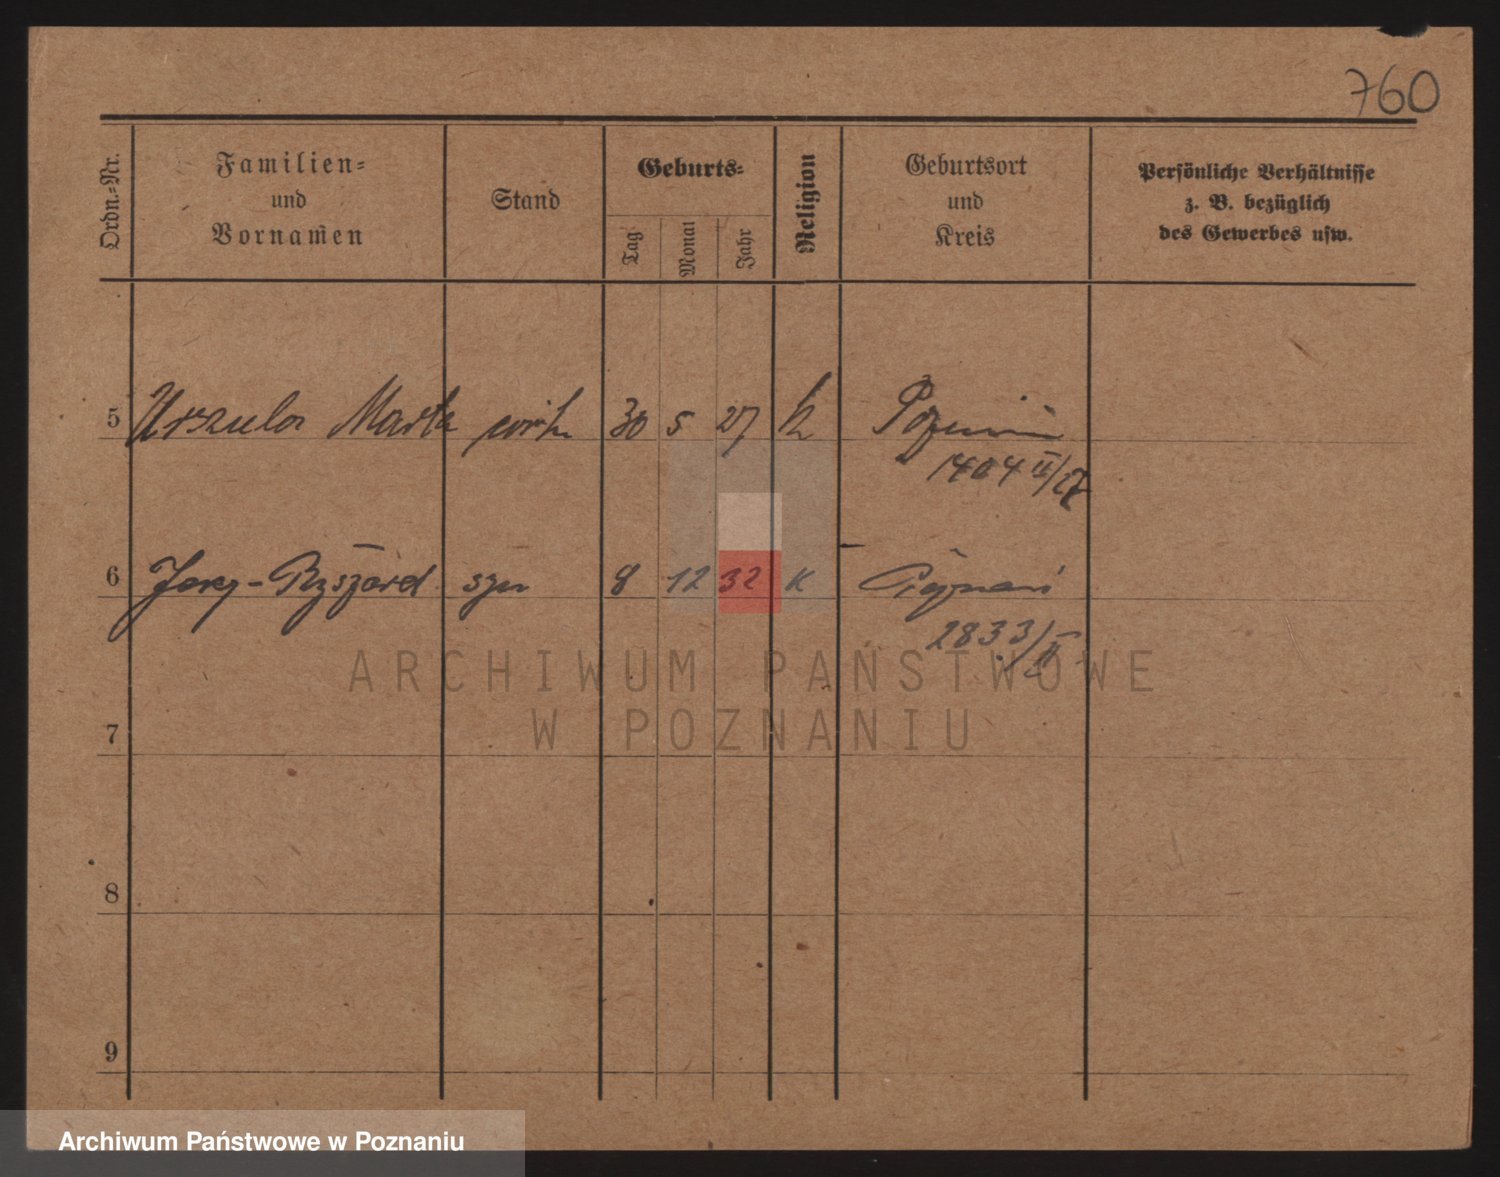 760
Ordn.-Nr.
Familien-
und
Vornamen
Stand
Geburts-
Tag
Monat
Jahr
Religion
Geburtsort
und
Kreis
Persönliche Verhältnisse
z. B. bezüglich
des Gewerbes usw.
5 Urszula Marta 30 5 27 k Poznań
1404 II/27
6 Jerzy-Ryszard syn 8 12 32 K Poznań
2833/II
7
8
9
ARCHIWUM PAŃSTWOWE
W POZNANIU
Archiwum Państwowe w Poznaniu